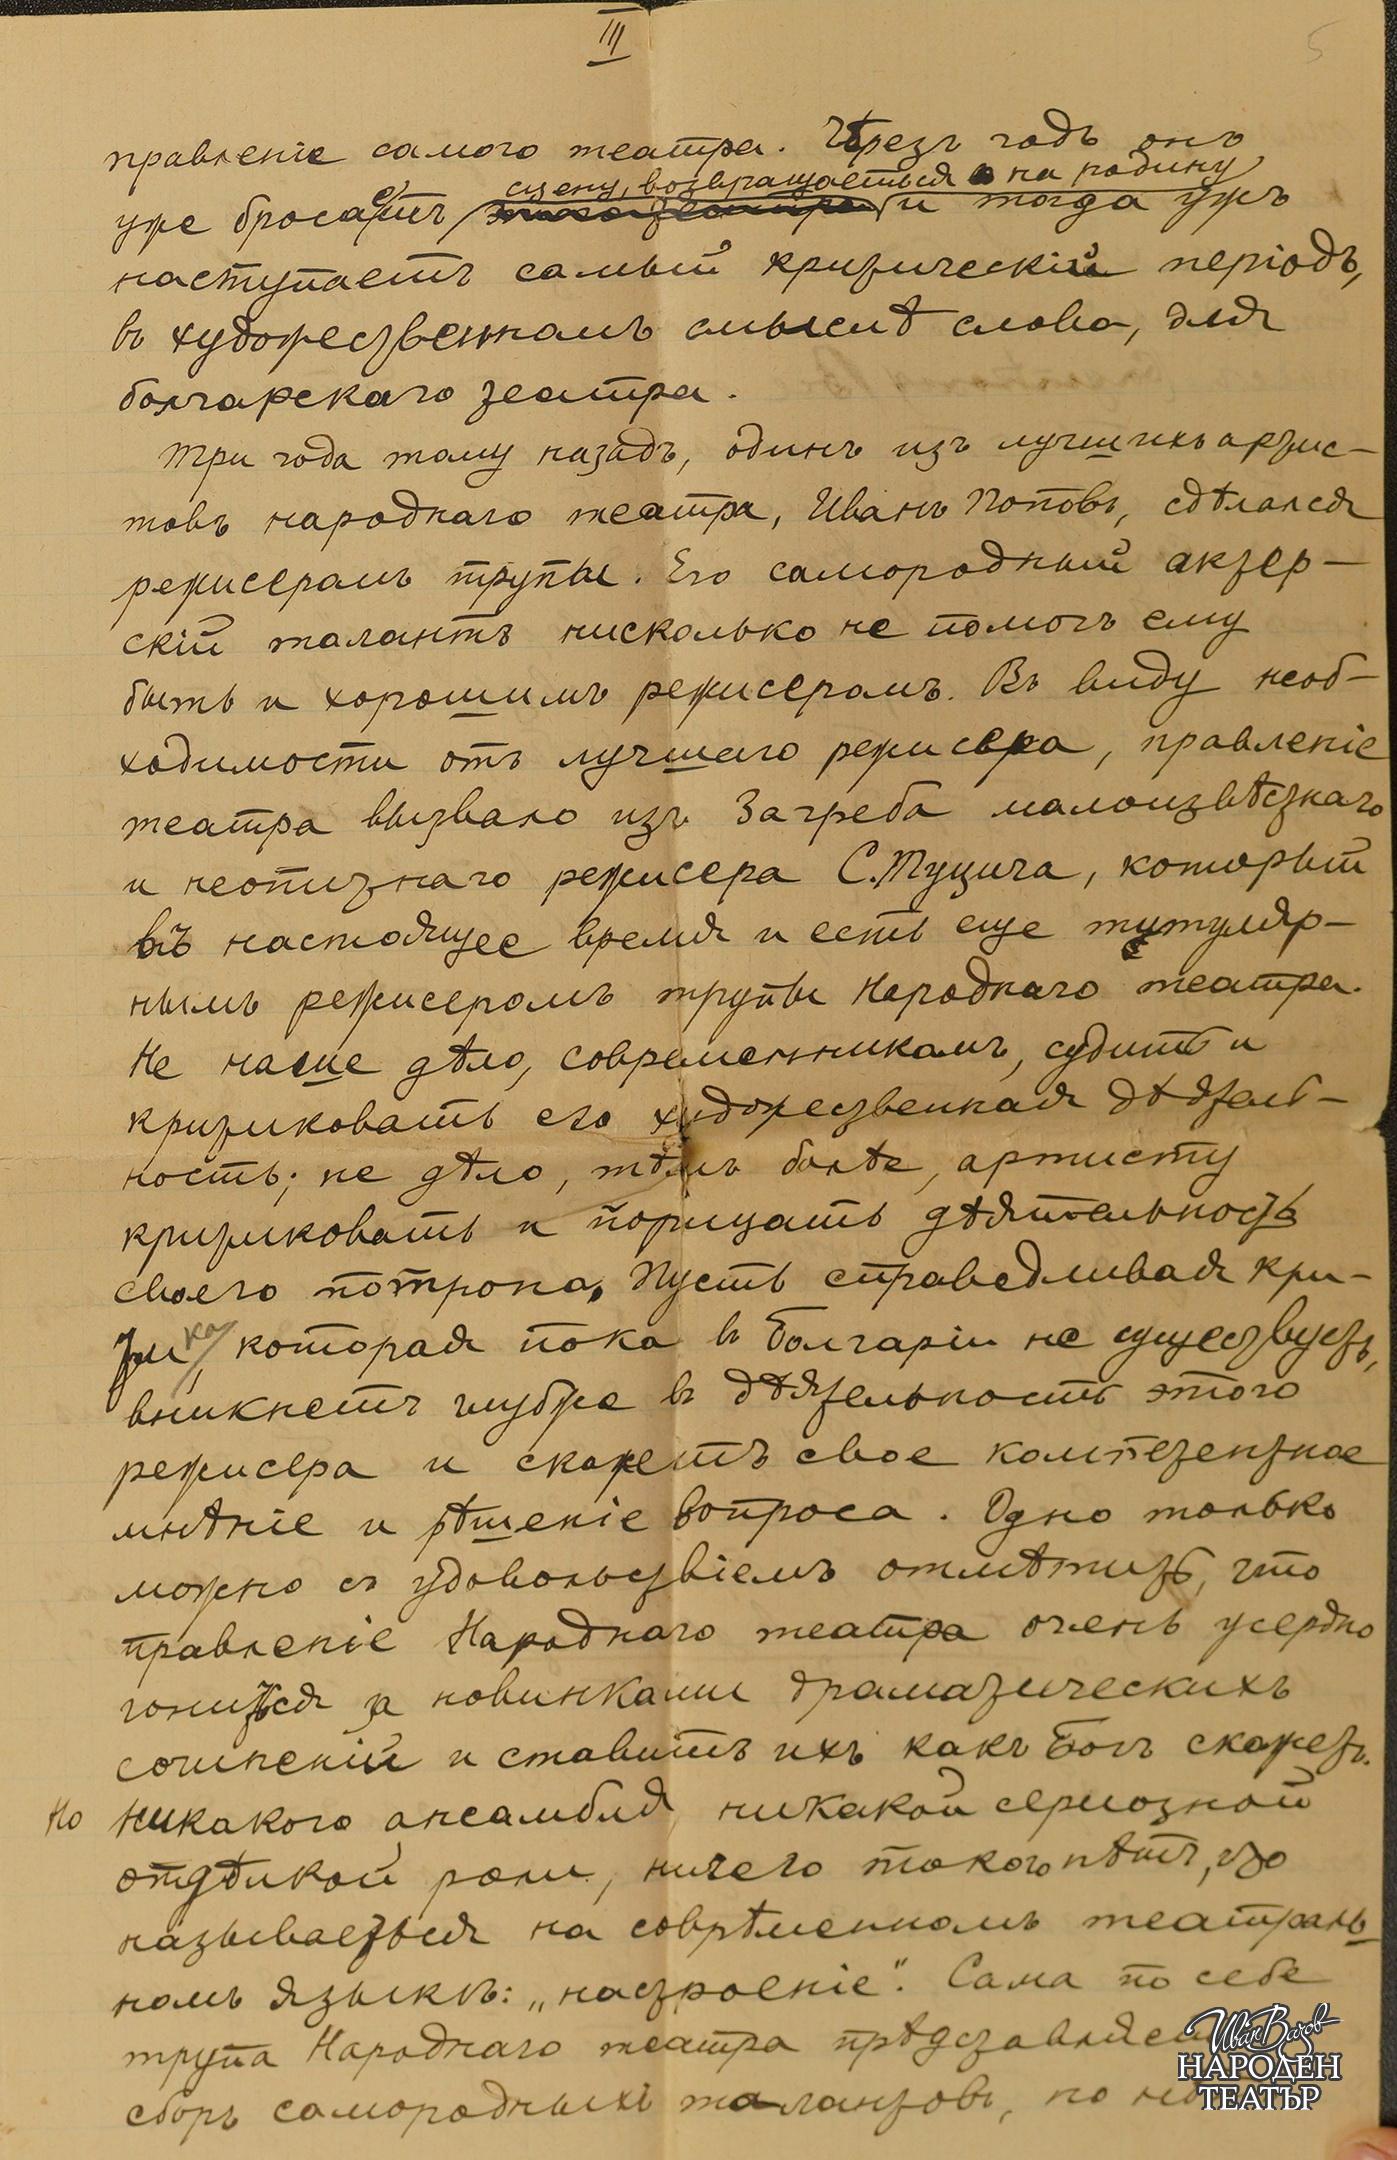 III
5
правленіе самого театра. Чрезъ годъ онъ
сцену, возвращаеться на родину
уже бросаетъ и тогда ужъ
наступаетъ самый критическій періодъ,
въ художественномъ смыслѣ слова, для
болгарскаго театра.
Три года тому назадъ, одинъ изъ лучшихъ артис-
товъ народнаго театра, Иванъ Поповъ, сдѣлался
режисеромъ трупы. Его самородный актер-
скій талантъ нисколько не помогъ ему
быть и хорошимъ режисеромъ. Въ виду необ-
ходимости отъ лучшаго режисера, правленіе
театра вызвало изъ Загреба малоизвѣстнаго
и неопитнаго режисера С. Туцича, который
въ настоящее время и есть еще титуляр-
нымъ режисеромъ трупы Народнаго театра.
Не наше дѣло, современникамъ, судить и
критиковать его художественная дѣятель-
ность; не дѣло, тѣмъ болѣе, артисту
критиковать и порицать дѣятельность
своего потрона. Пусть справедливая кри-
тика, которая пока въ Болгаріи не существуетъ,
вникнетъ глубже въ дѣятельность этого
режисера и скажетъ свое компетентное
мнѣніе и рѣшеніе вопроса. Одно только
можно съ удовольствіемъ отмѣтить, что
правленіе Народнаго театра очень усердно
гонится за новинками драматическихъ
сочиненій и ставитъ ихъ какъ Богъ скажетъ.
Но никакого ансамбля, никакой сериозной
отдѣлкой роли, ничего такого нѣтъ, что
называеться на соврѣменномъ театраль
номъ языкѣ: „настроеніе". Сама по себе
трупа Народнаго театра прѣдставляе
сборъ самородныхъ талантовъ, но
Иван Вазов
НАРОДЕН
ТЕАТЪР